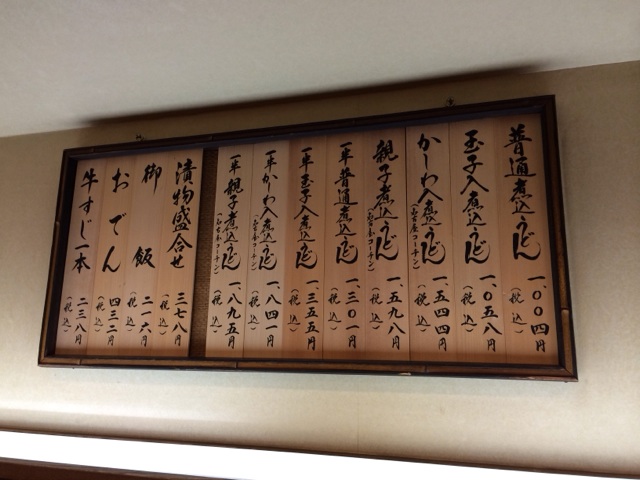 普通煮込うどん 一、〇〇四円 (税込)
玉子入煮込うどん 一、〇五八円 (税込)
かしわ入煮込うどん (名古屋コーチン) 一、五四四円 (税込)
親子煮込うどん (名古屋コーチン) 一、五九八円 (税込)
一半普通煮込うどん 一、三〇一円 (税込)
一半玉子入煮込うどん 一、三五五円 (税込)
一半かしわ入煮込うどん (名古屋コーチン) 一、八四一円 (税込)
一半親子煮込うどん (名古屋コーチン) 一、八九五円 (税込)
漬物盛合せ 三七八円 (税込)
御飯 二一六円 (税込)
おでん 四三二円 (税込)
牛すじ一本 二三八円 (税込)